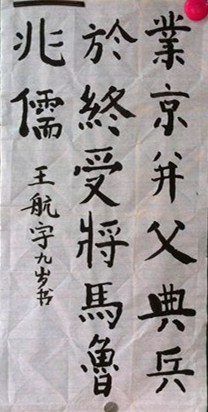 業京并父典兵
於終受將馬魯
兆儒
王航宇九岁书